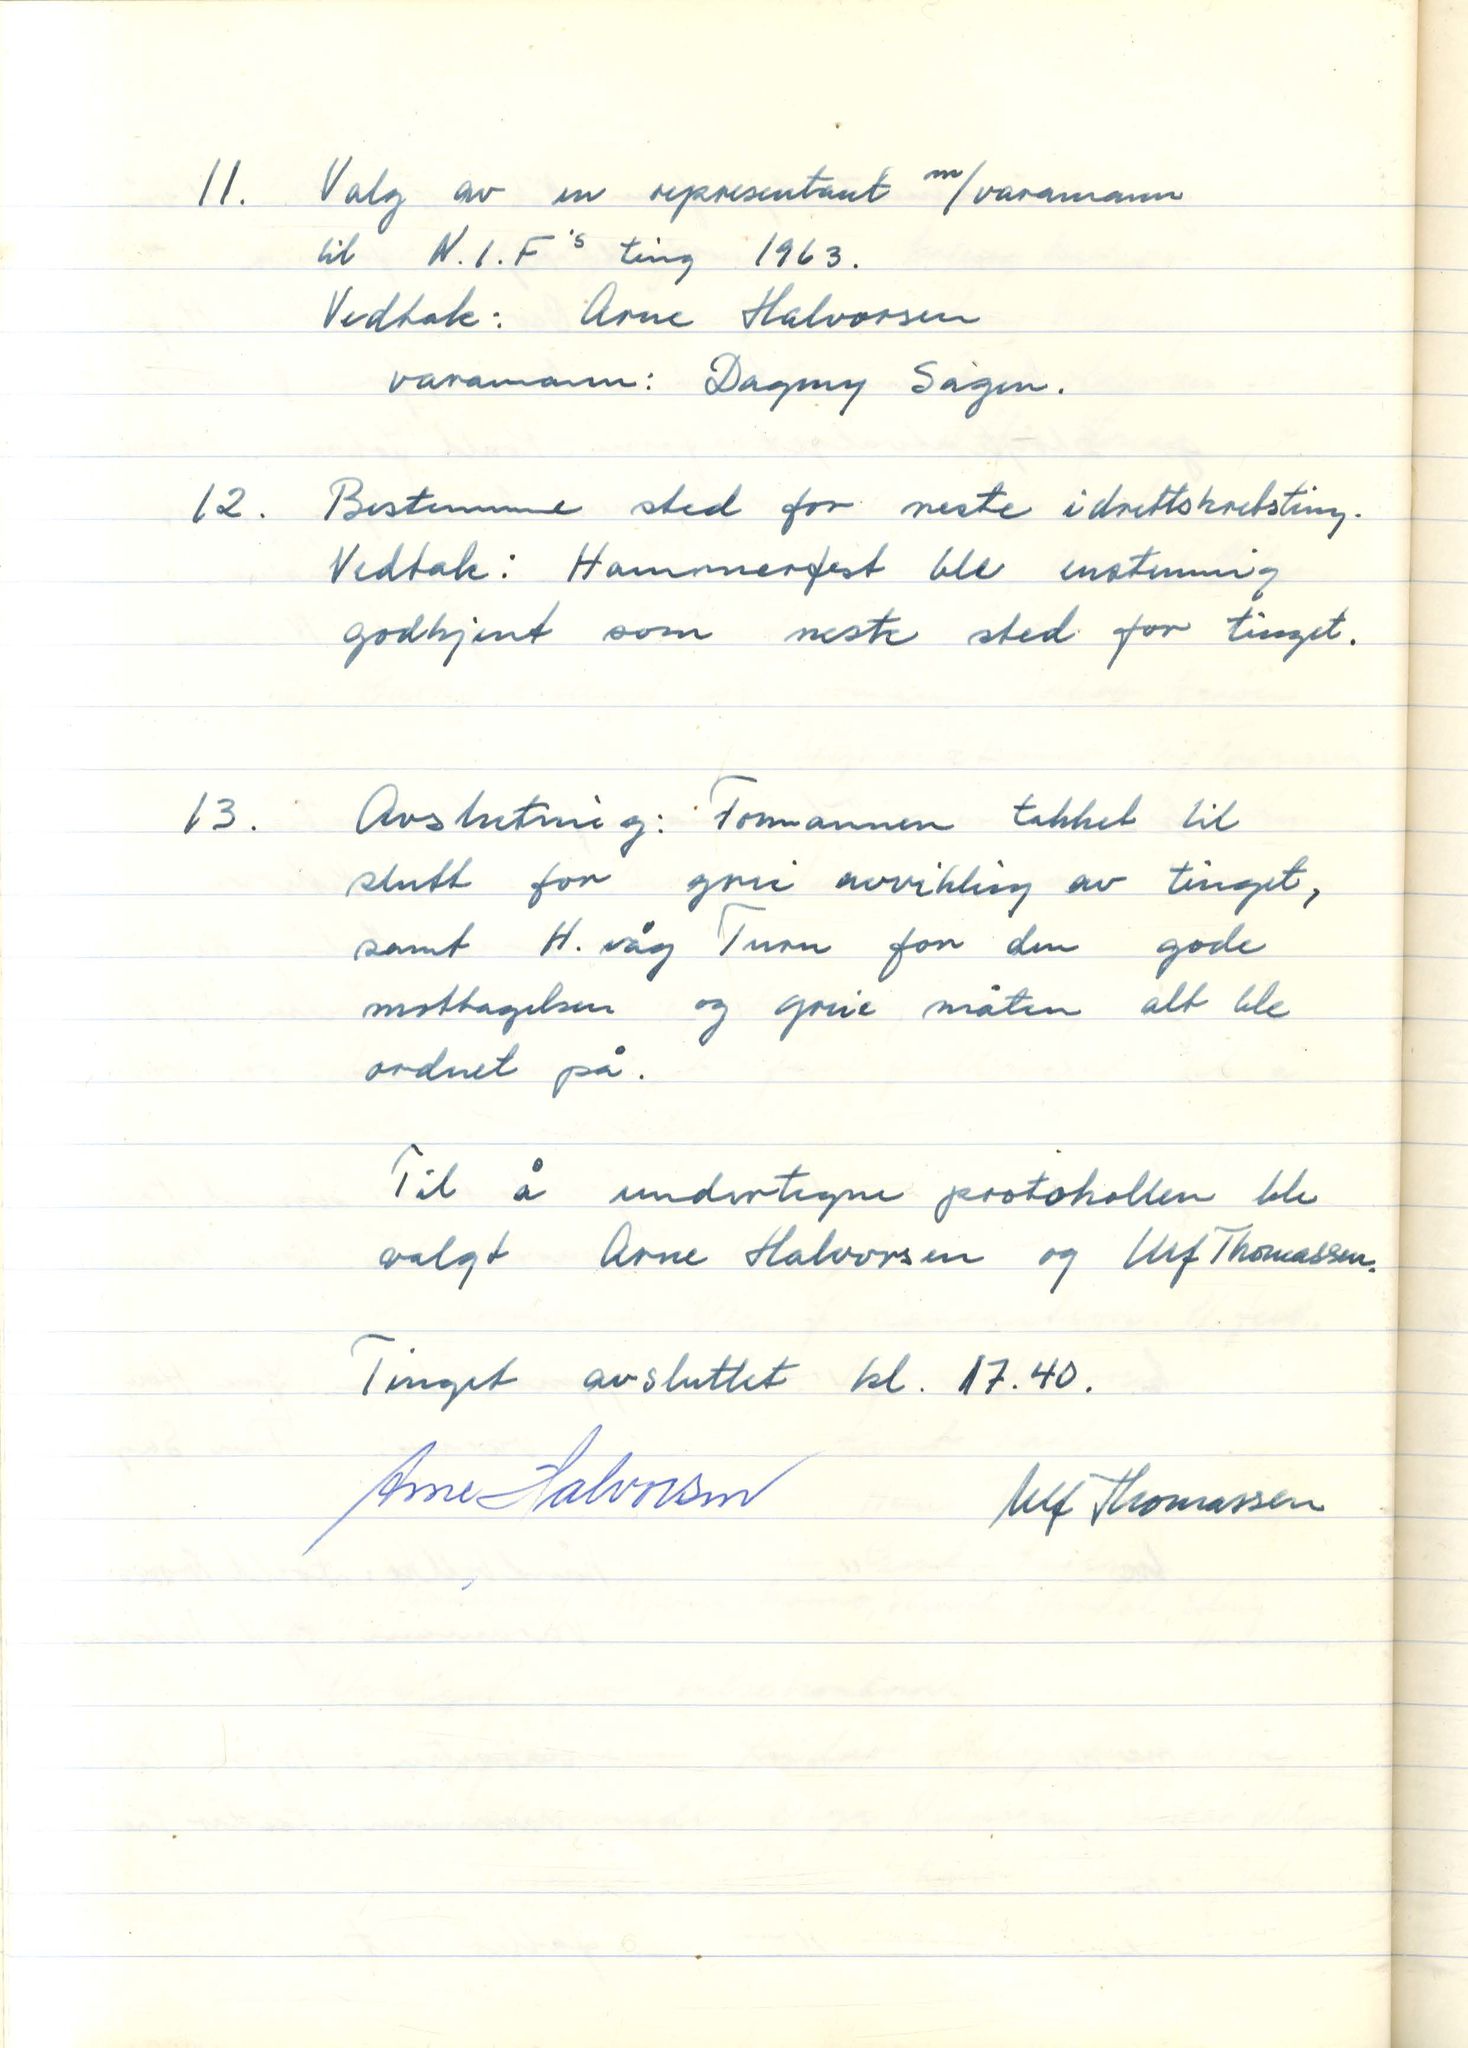 11. Valg av en representant m/varamann
til N.I.F's ting 1963.
Vedtak: Arne Halvorsen
varamann: Dagmy Sagen.
12. Bestemme sted for neste idrettskretsting.
Vedtak: Hammerfest ble enstemmig
godkjent som neste sted for tinget.
13. Avslutning: Formannen takket til
slutt for grei avvikling av tinget,
samt H.våg Turn for den gode
mottagelsen og greie måten alt ble
ordnet på.
Til å undertegne protokollen ble
valgt Arne Halvorsen og Ulf Thomassen.
Tinget avsluttet kl. 17.40.
Arne Halvorsen Ulf Thomassen